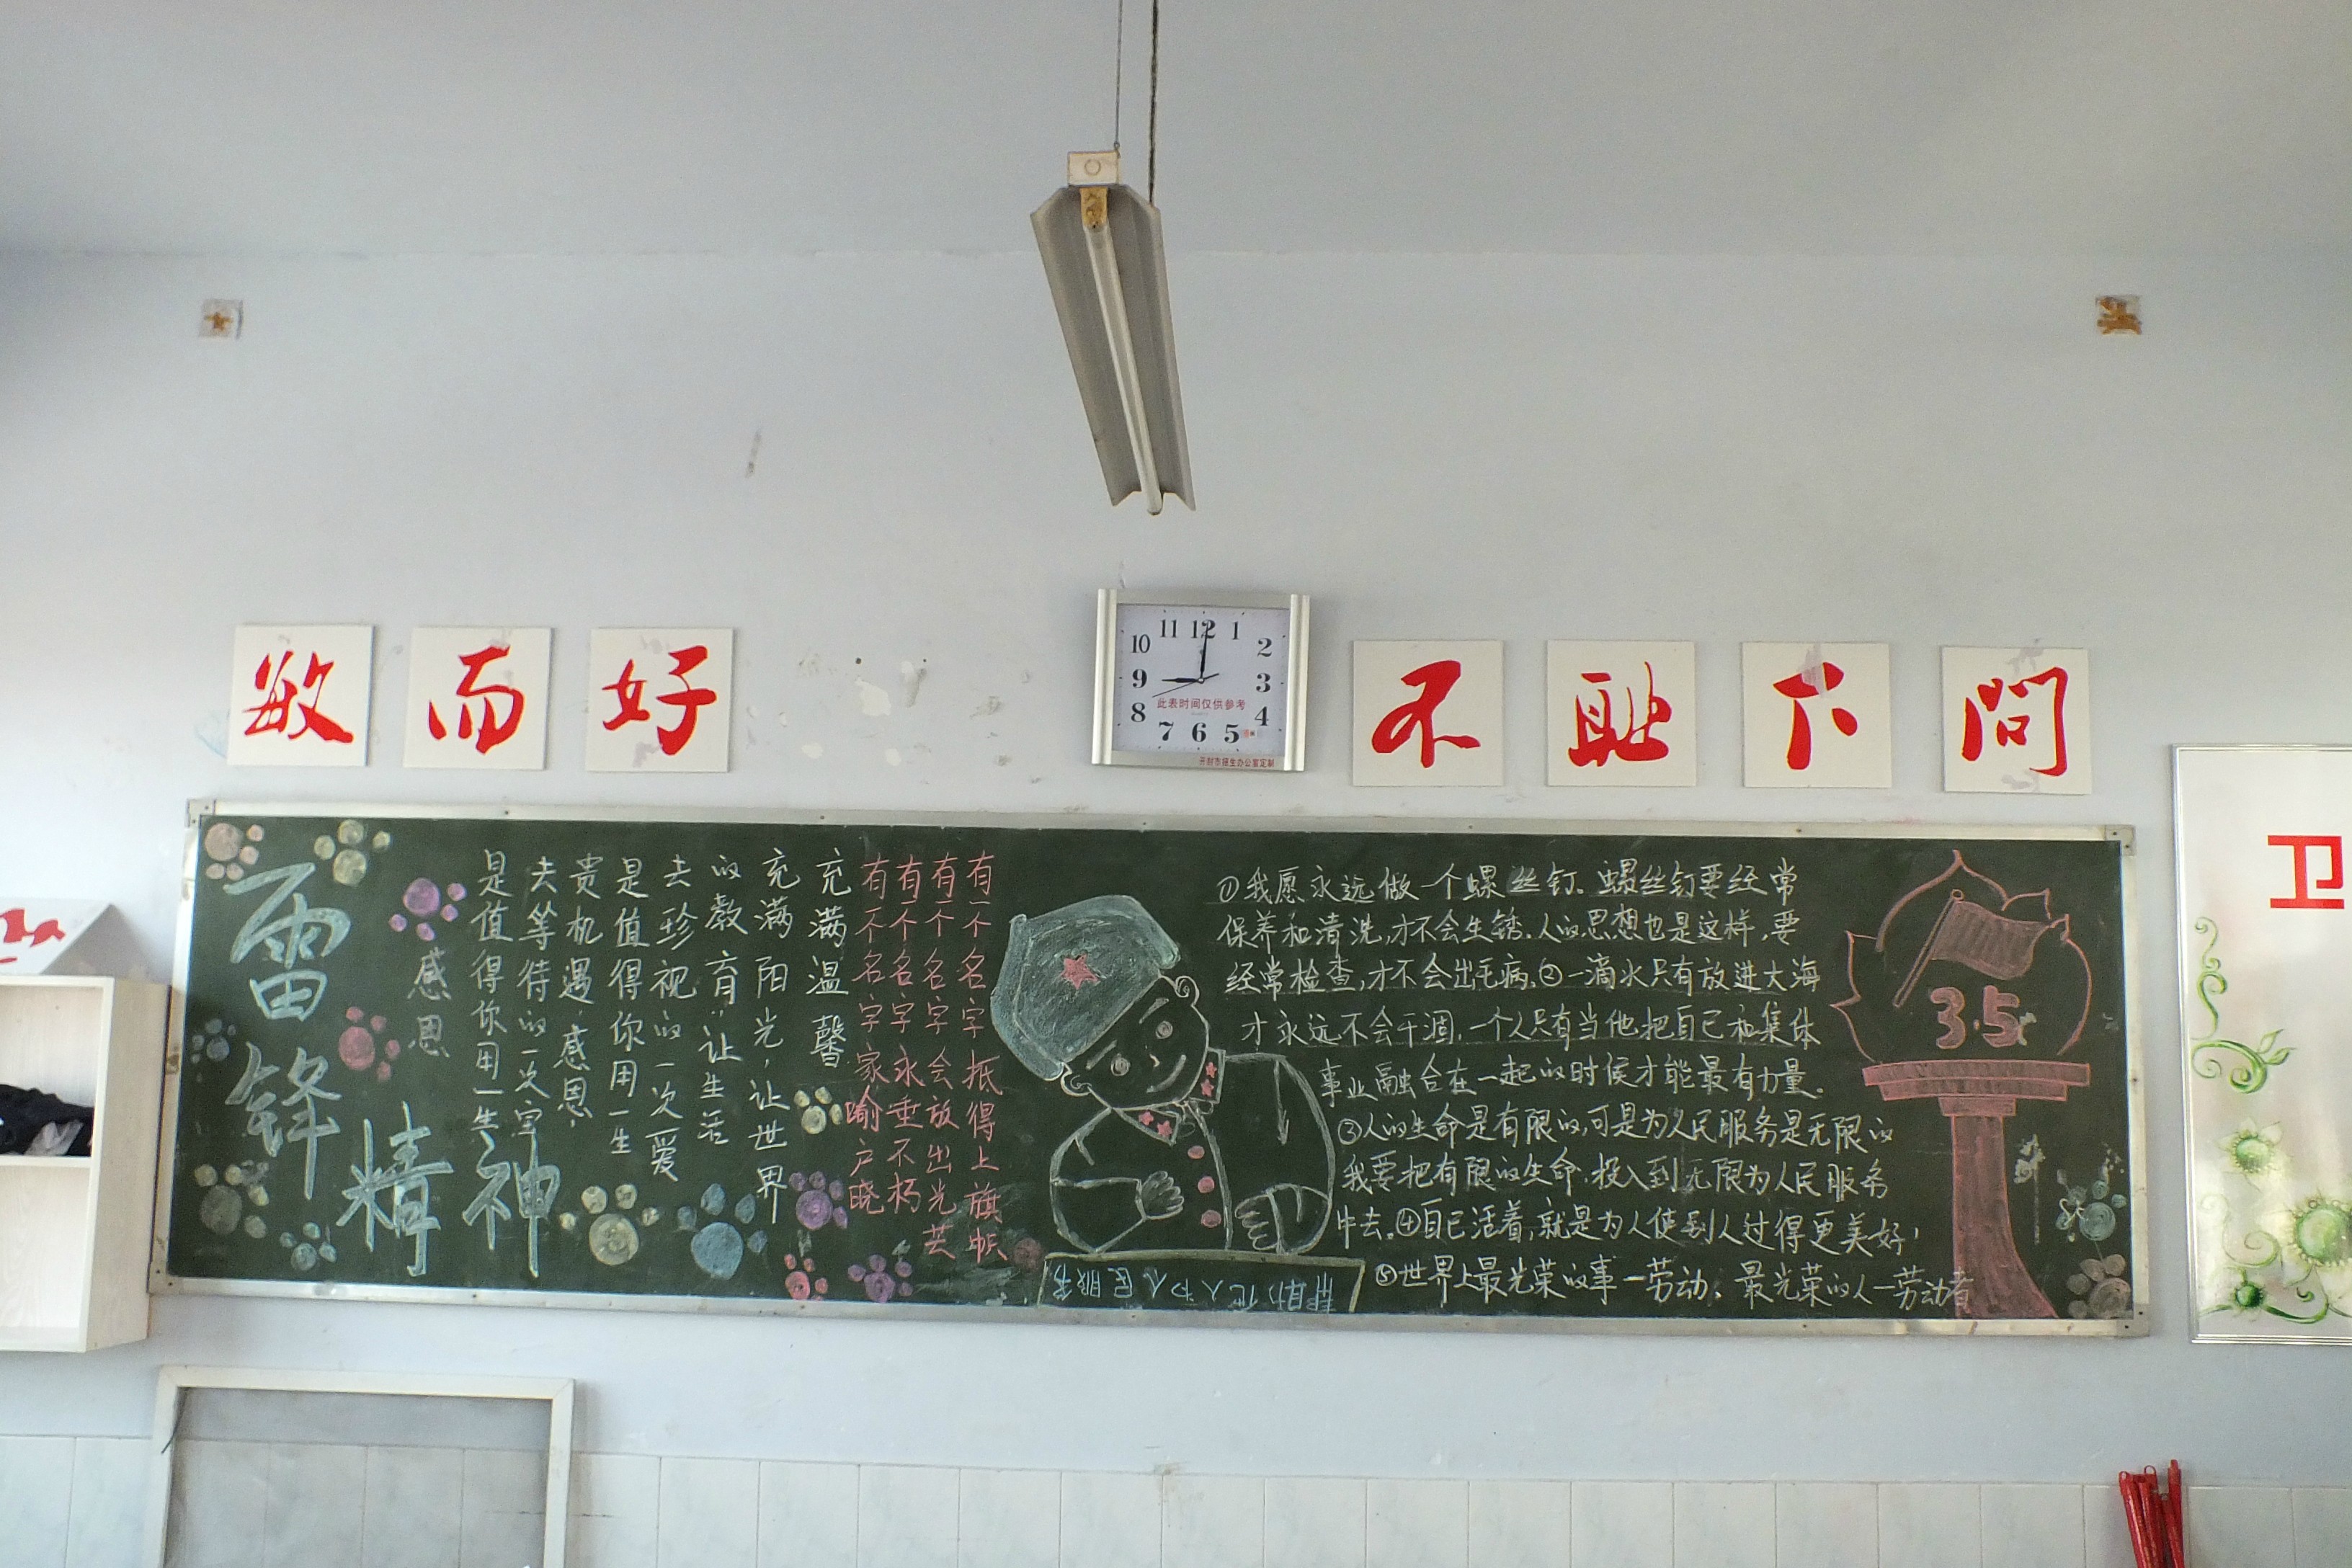 敏而好
不耻下问
11 12 1
10 2
9 3
8 4
7 6 5
此表时间仅供参考
开封市招生办公室定制
卫
雷锋
精神
感恩
是值得你用一生
去等待的一次宝
贵机遇,感恩,
是值得你用一生
去珍视的一次爱
的教育,让生活
充满阳光,让世界
充满温馨
有一个名字抵得上旗帜
有一个名字会放出光芒
有一个名字永垂不朽
有一个名字家喻户晓
帮助他人为人民服务
①我愿永远做一个螺丝钉.螺丝钉要经常
保养和清洗,才不会生锈.人的思想也是这样,要
经常检查,才不会出毛病.②一滴水只有放进大海
才永远不会干涸,一个人只有当他把自己和集体
事业融合在一起的时候才能最有力量.
③人的生命是有限的,可是为人民服务是无限的
我要把有限的生命,投入到无限为人民服务
中去.④自己活着,就是为人使别人过得更美好,
⑤世界上最光荣的事一劳动、最光荣的人一劳动者
3.5